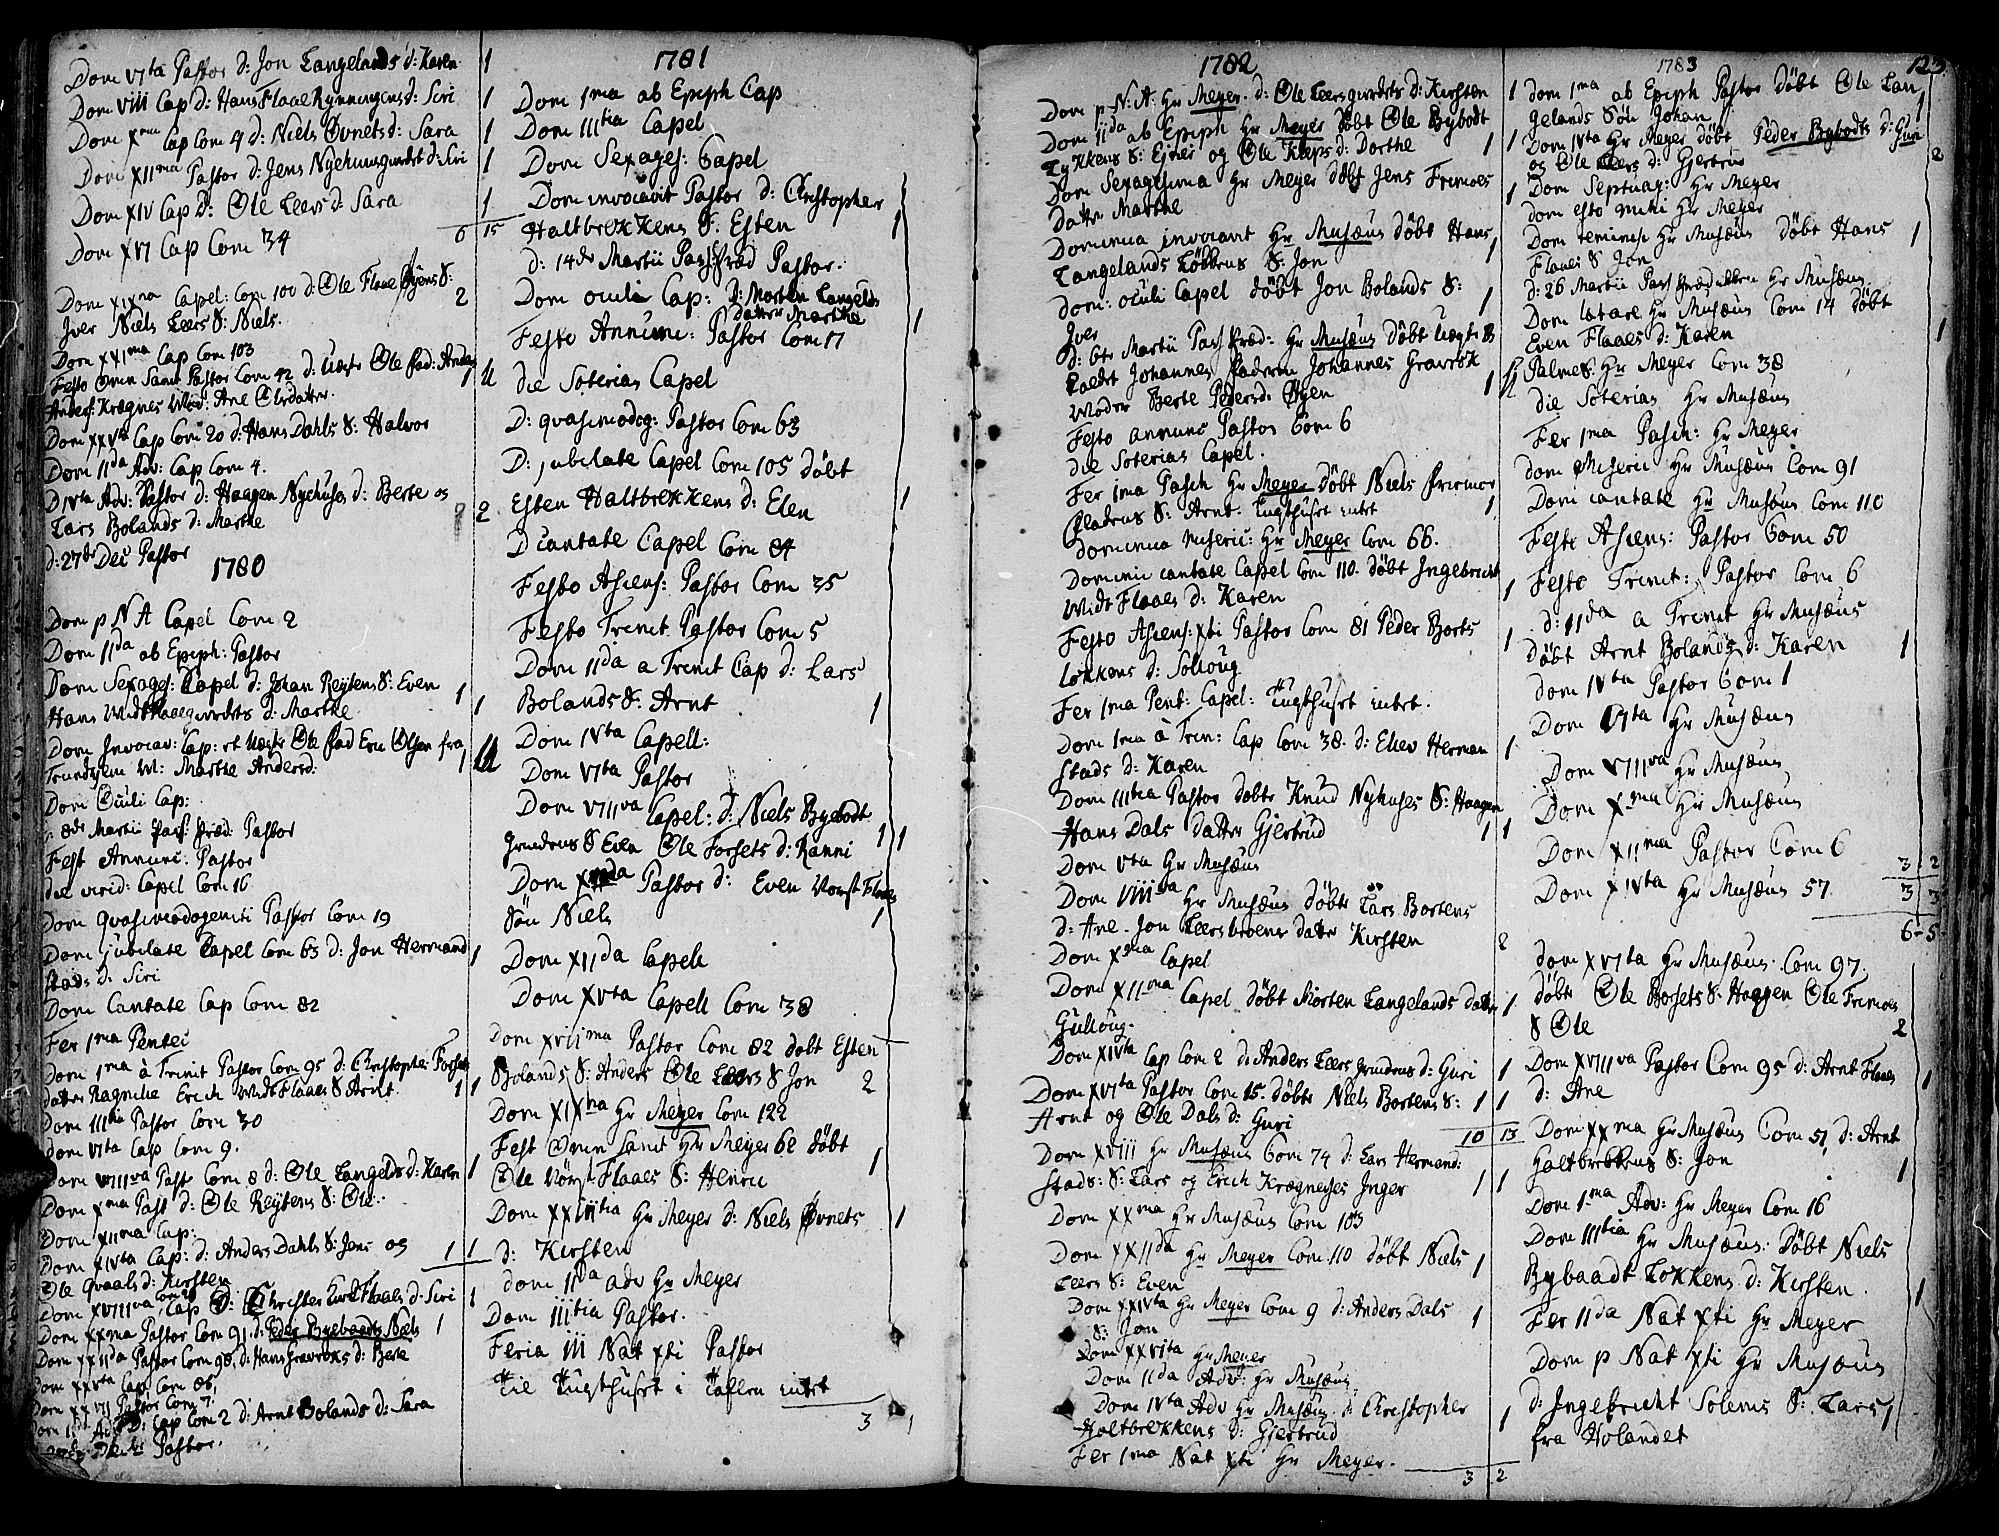 Dom VIta Pastor d: Jon Langelands d: Karen 1
Dom VIII Cap d: Hans Flaae Rynningens d: Siri 1
Dom Xma Cap Com 9 d: Niels Øvnets d: Sara 1
Dom XIIma Pastor d: Jens Nyehuusgierdet d: Siri 1
Dom XIV Cap D: Ole Leers d: Sara 1
Dom XVI Cap Com 34 6 15
Dom XIXna Capel: Com 100 d: Ole Flaae Øyens S: 2
Iver Niels Leers S: Niels.
Dom XXIma Cap Com 103
Festo Omn Sanct Pastor Com 42 d: Uægte Ole fad: Anders
Anders: Krægnes Mod: Ane Olsdatter.
Dom XXVta Cap Com 20 d: Hans Dahls S: Halvor
Dom IIda Adv: Cap Com 4.
D IVta Adv: Pastor d: Haagen Nyehuses d: Berte og 2
Lars Bolands d: Marthe
d: 27de Dec Pastor
1780
Dom p N A Capel Com 2
Dom IIda ab Epiph: Pastor
Dom Sexages: Capel d: Johan Reytens S: Even 1
Hans Midt Flaaegierdets d: Marthe 1
Dom Invocav: Cap: et Uægte Ole fad Eric Olsen fra
Trundhjem M: Marthe Andersd: 1
Dom Oculi Cap:
8de Martii Pass: Præd: Pastor
Fest Annunc: Pastor
die virid: Capel Com 16
Dom Quasimodogeniti Pastor Com 19
Dom jubilate Capel Com 63 d: Jon Hermand 1
stads d: Siri
Dom Cantate Cap Com 82
Fer 1ma Pentec
Dom 1ma à Trinit Pastor Com 95 d: Christopher Forsets
datter Ragnilie Erich Midt Flaaes S Arnt. 1 1
Dom IIItia Pastor Com 30
dom VIta Cap Com 9.
Dom VIIIva Past Com 8 d: Ole Langelds d: Karen 1
Dom Xma Past d: Ole Reytens S: Ole.
Dom XIIma Cap:
Dom XIVta Cap: d: Anders Dahls S: Jens og 1 1
Ole Qvaals d: Kirsten
Dom XVIIIva Cap D: Christen Flaaes d: Siri 1
Dom XXma Pastor Com 91 d: Peder Byebaadts Niels 1
Dom XXIIda Pastor Com 98, d: Hans Gravroks d: Berte
Dom XXVta Cap Com 85,
Dom XXVII Pastor Com 7.
Dom IIda Adv D: Cap Com 2 d: Arnt Bolands d: Sara
Pastor.
1781
Dom 1ma ab Epiph Cap
Dom IIItia Capel
Dom Sexages: Capel
Dom invocavit Pastor d: Christopher
Haltbrekkens S. Esten 1
d: 14de Martii Pass: Præd Pastor.
Dom oculi Cap: d: Morten Langelds
datter Marthe 1
Festo Annunc: Pastor Com 17
die Soterias Capel
D: quasimodog: Pastor Com 63
D: jubilate Capel Com 105 døbt
Esten Haltbrekkens d: Elen 1
D cantate Capel Com 84
Festo Ascens: Pastor Com 35
Festo Trinit. Pastor Com 5
Dom IIda a Trinit Cap d: Lars
Bolands S: Arnt 1
Dom IVta Capell:
Dom VIta Pastor
Dom VIIIva Capel: d: Niels Byebodt
grindens S Even Ole Forsets d: Ranni 1 1
Dom Pastor d: Even Vorst Flaaes
Søn Niels 1
Dom XIIda Capell
Dom XVta Capell Com 38
Dom XVIIma Pastor Com 82 døbt Esten
Bolands S: Anders Ole Leers S Jon 2
Dom XIXna Hr Meyer Com 122
Fest Omn Sanct Hr Meyer 62 døbt
Ole Vørst Flaaes S: Henric 1
Dom XXIIItia Hr Meyer d: Niels Øvnets 1
d: Kirsten
dom IIda adv Hr Meyer
Dom IIItia Pastor.
Feria III Nat xti Pastor
Til Tugthuset i Taflen intet
3 1
1782
Dom p: N: A: Hr Meyer. d: Ole Leersgierdets d: Kirsten 1
Dom IIda ab Epiph Hr Meyer døbt Ole Bybodt
Lykkens S: Ejner og Ole Kleps d: Dorthe 1 1
Dom Sexagesima Hr Meyer døbt Jens Fremoes 1
datter Marthe
Dominica invocavit Hr Musæus døbt Hans
Langelands Løkkens S: Jon 1
dom: oculi Capel døbt Jon Bolands S:
Iver 1
d: 6te Martii Pass Præd: Hr Musæus døbt Uægte B
Kaldet Johannes Faderen Johannes Gravrok
Moder Berte Pedersd: Øyen 1
Festo annunc Pastor Com 6
die Soterias Capel.
Fer 1ma Pasch Hr Meyer døbt Niels Fremoe
Pladens S: Arnt. Tugthuset intet 1
dominica miseric: Hr Meyer Com 66.
Dominic cantate Capel Com 110. døbt Ingebricht
Midt Flaaes d: Karen 1
Festo Ascens: xti Pastor Com 81 Peder Borts
Løkkens d: Solloug 1
Fer 1ma Pent: Capel: Tugthuset intet.
Dom 1ma à Trin: Cap Com 38. d: Eliev Herman 1
stads d: Karen
Dom IIItia Pastor døbte Knud Nyhuses S: Haagen
Hans Dals datter Gjertrud 1 1
Dom Vta Hr Musæus
Dom VIIIva Hr Musæus døbte Lars Bortens
d: Ane. Jon Leersbroens datter Kirsten 2
Dom Xma Capel
Dom XIIma Capel døbt Morten Langelands datter 1
Gulloug.
Dom XIVta Cap Com 2 d: Anders Leers grindens d: Guri 1
Dom XVIta Pastor Com 15. døbte Niels Bortens S: 1 1
Arnt og Ole Dals d: Guri 10 13
Dom XVIII Hr Musæus Com 74 d: Lars Hermand:
stads: S: Lars og Erich Krægneses Inger 1 1
Dom XXma Hr Musæus Com 103
Dom XXIIda Hr Meyer Com. 110 døbt Niels 1
Leers S: Even
Dom XXIVta Hr Meyer Com 9 d: Anders Dals 1
S: Jon
Dom XXVIta Hr Meyer
Dom IIda Adv: Hr Musæus
Dom IVta Adv Hr Musæus d: Christopher 1
Haltbrekkens d: Gjertrud
Fer 1ma Nat xti Hr Meyer. 3 2
1783 123.
dom 1ma ab Epiph Pastor døbt Ole Lan
gelands Søn Johan 1
Dom IVta Hr Meyer døbt Peder Bybodts d: Guri
og Ole Leers d: Gjertrud 2
Dom Septuag: Hr Meyer
dom esto mihi Hr Meyer
Dom reminisc Hr Musæus døbt Hans
Flaaes S Jon 1
d: 26 Martii Pass Prædiken Hr Musæus
Dom lætare Hr Musæus Com 14 døbt
Even Flaaes d: Karen 1
Palmes: Hr Meyer Com 38
die Soterias Hr Musæus
Fer 1ma Pasch: Hr Meyer
dom Miseric Hr Musæus Com 91
Dom cantate Hr Musæus Com 110
Festo Ascens: Pastor Com 50
Festo Trinit: Pastor Com 6
d: IIda a Trinit Hr Musæus
døbt Arnt Bolands d: Karen 1
dom IVta Pastor Com 1
Dom VIta Hr Musæus
Dom VIIIva Hr Musæus
Dom Xma Hr Musæus
Dom XIIma Pastor Com 6 3 2
Dom XIVta Hr Musæus 57. 3 3
6 - 5
dom XVIta Hr Musæus. Com 97.
døbt Ole Borsets S: Haagen Ole Fremoes
S Ole 2
Dom XVIIIva Pastor Com 95 d: Arnt Flaaes
d: Ane 1
Dom XXma Hr Musæus Com 51 d: Arnt
Haltbrekkens S: Jon 1
Dom 1ma Adv: Hr Meyer Com 16
Dom IIItia Hr Musæus: døbt Niels
Bybaadt Løkkens d: Kirsten. 1
Fer IIda Nat xti Hr Meyer
Dom p Nat xti Hr Musæus
d: Ingebricht Solems S: Lars 1
fra Holandet